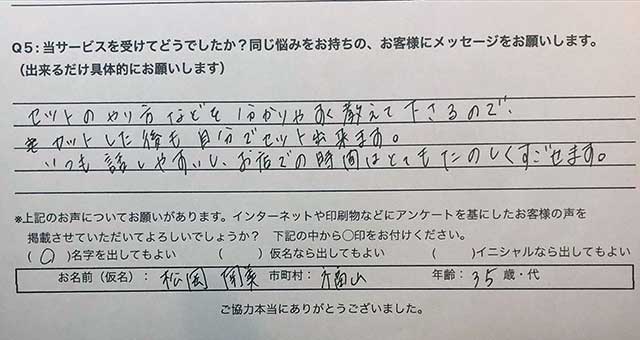 Q5：当サービスを受けてどうでしたか？同じ悩みをお持ちの、お客様にメッセージをお願いします。
（出来るだけ具体的にお願いします）
セットのやり方などを分かりやすく教えて下さるので、
カットした後も自分でセット出来ます。
いつも話しやすいし、お店での時間はとてもたのしくすごせます。
※上記のお声についてお願いがあります。インターネットや印刷物などにアンケートを基にしたお客様の声を
掲載させていただいてよろしいでしょうか？　下記の中から〇印をお付けください。
（〇）名字を出してもよい　（　）仮名なら出してもよい　（　）イニシャルなら出してもよい
お名前（仮名）： 松岡 市町村： 福山 年齢： 35 歳・代
ご協力本当にありがとうございました。